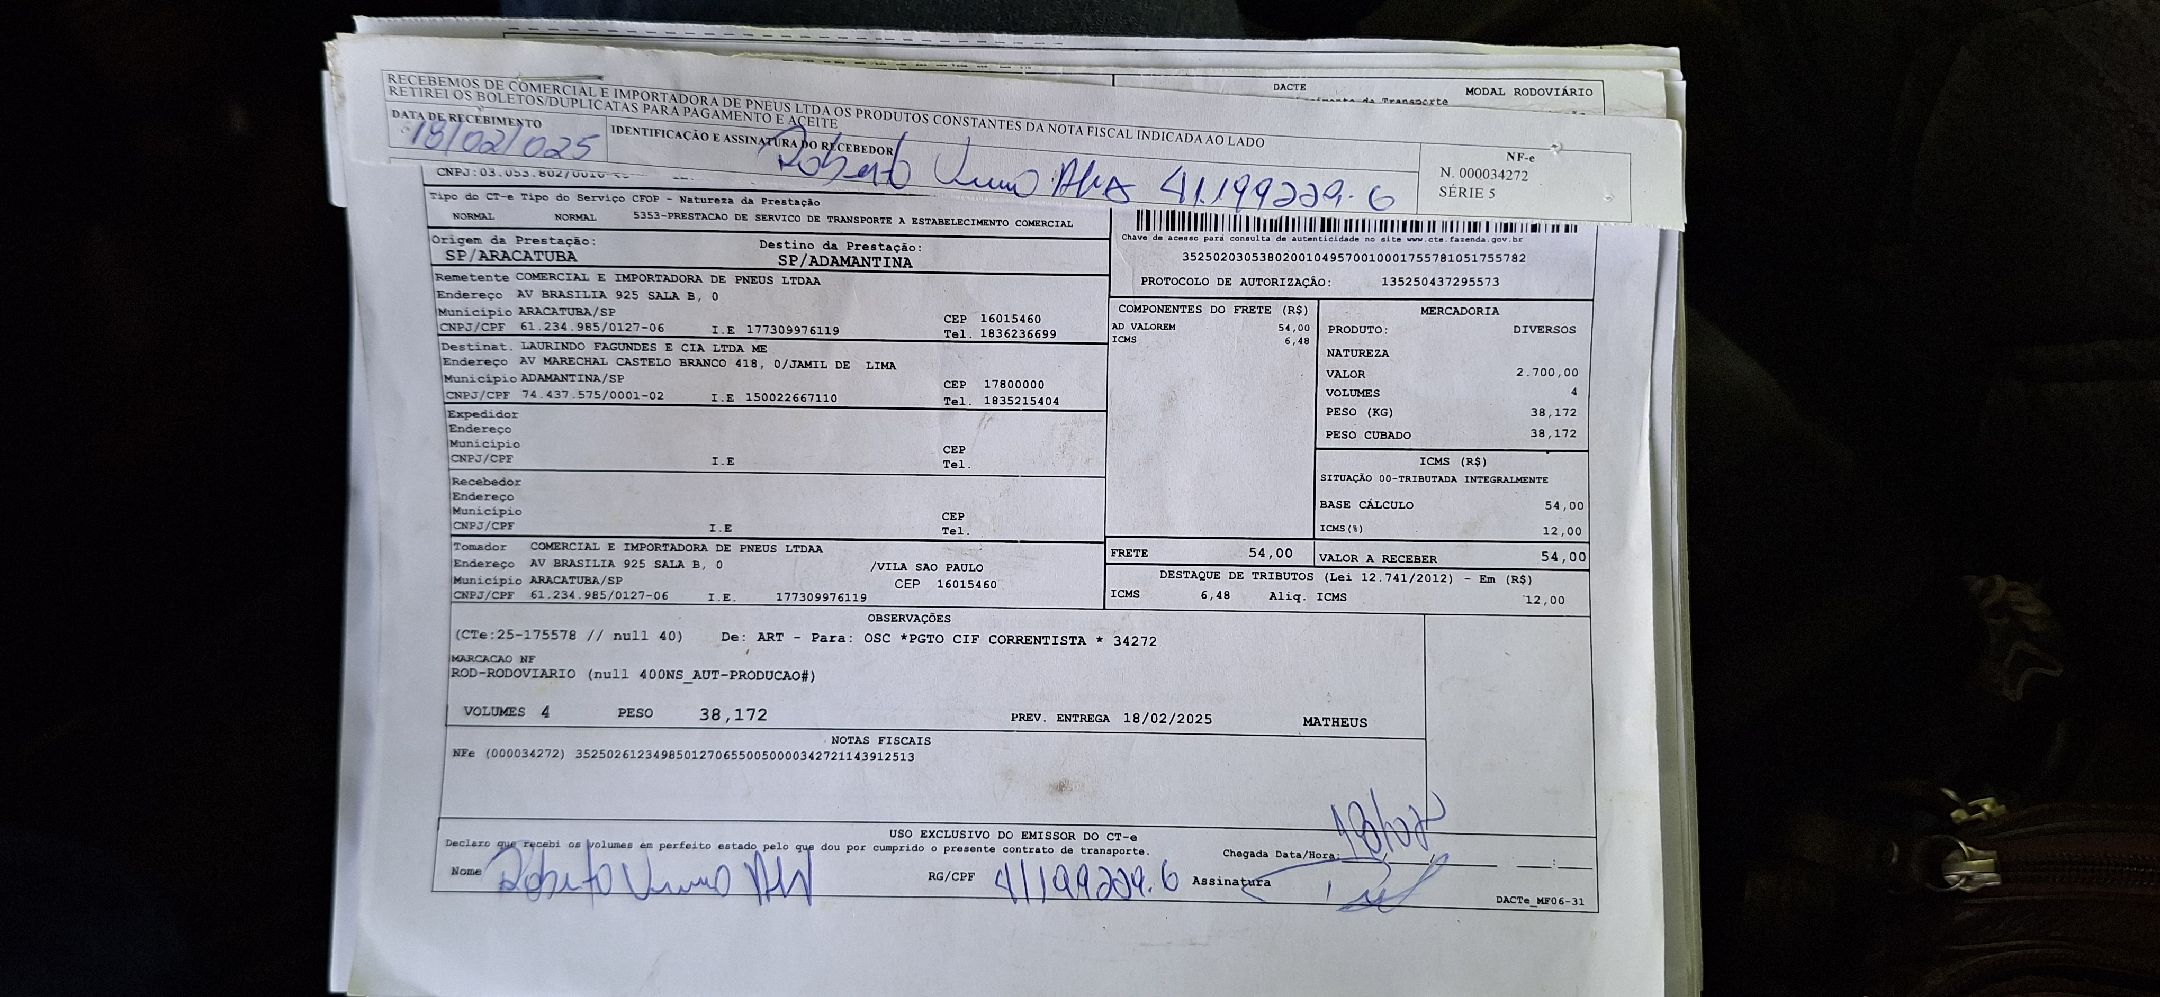 DACTE
MODAL RODOVIÁRIO
RECEBEMOS DE COMERCIAL E IMPORTADORA DE PNEUS LTDA OS PRODUTOS CONSTANTES DA NOTA FISCAL INDICADA AO LADO
RETIREI OS BOLETOS/DUPLICATAS PARA PAGAMENTO E ACEITE
DATA DE RECEBIMENTO
18/02/025
IDENTIFICAÇÃO E ASSINATURA DO RECEBEDOR
Roberto 41.199229.6
NF-e
N. 000034272
SÉRIE 5
CNPJ:03.053.802/0010
Tipo do CT-e Tipo do Serviço CFOP - Natureza da Prestação
NORMAL NORMAL 5353-PRESTACAO DE SERVICO DE TRANSPORTE A ESTABELECIMENTO COMERCIAL
Chave de acesso para consulta de autenticidade no site www.cte.fazenda.gov.br
35250203053802001049570010001755781051755782
PROTOCOLO DE AUTORIZAÇÃO: 135250437295573
Origem da Prestação: Destino da Prestação:
SP/ARACATUBA SP/ADAMANTINA
Remetente COMERCIAL E IMPORTADORA DE PNEUS LTDAA
Endereço AV BRASILIA 925 SALA B, 0
Município ARACATUBA/SP CEP 16015460
CNPJ/CPF 61.234.985/0127-06 I.E 177309976119 Tel. 1836236699
Destinat. LAURINDO FAGUNDES E CIA LTDA ME
Endereço AV MARECHAL CASTELO BRANCO 418, 0/JAMIL DE LIMA
Município ADAMANTINA/SP CEP 17800000
CNPJ/CPF 74.437.575/0001-02 I.E 150022667110 Tel. 1835215404
Expedidor
Endereço
Município CEP
CNPJ/CPF I.E Tel.
Recebedor
Endereço
Município CEP
CNPJ/CPF I.E Tel.
Tomador COMERCIAL E IMPORTADORA DE PNEUS LTDAA
Endereço AV BRASILIA 925 SALA B, 0 /VILA SAO PAULO
Município ARACATUBA/SP CEP 16015460
CNPJ/CPF 61.234.985/0127-06 I.E. 177309976119
COMPONENTES DO FRETE (R$)
AD VALOREM 54,00
ICMS 6,48
FRETE 54,00
MERCADORIA
PRODUTO: DIVERSOS
NATUREZA
VALOR 2.700,00
VOLUMES 4
PESO (KG) 38,172
PESO CUBADO 38,172
ICMS (R$)
SITUAÇÃO 00-TRIBUTADA INTEGRALMENTE
BASE CÁLCULO 54,00
ICMS(%) 12,00
VALOR A RECEBER 54,00
DESTAQUE DE TRIBUTOS (Lei 12.741/2012) - Em (R$)
ICMS 6,48 Aliq. ICMS 12,00
OBSERVAÇÕES
(CTe:25-175578 // null 40) De: ART - Para: OSC *PGTO CIF CORRENTISTA * 34272
MARCACAO NF
ROD-RODOVIARIO (null 400NS_AUT-PRODUCAO#)
VOLUMES 4 PESO 38,172 PREV. ENTREGA 18/02/2025 MATHEUS
NOTAS FISCAIS
NFe (000034272) 35250261234985012706550050000342721143912513
USO EXCLUSIVO DO EMISSOR DO CT-e
Declaro que recebi os volumes em perfeito estado pelo que dou por cumprido o presente contrato de transporte.
Chegada Data/Hora:
Nome Roberto RG/CPF 41199229.6 Assinatura
DACTe_MF06-31